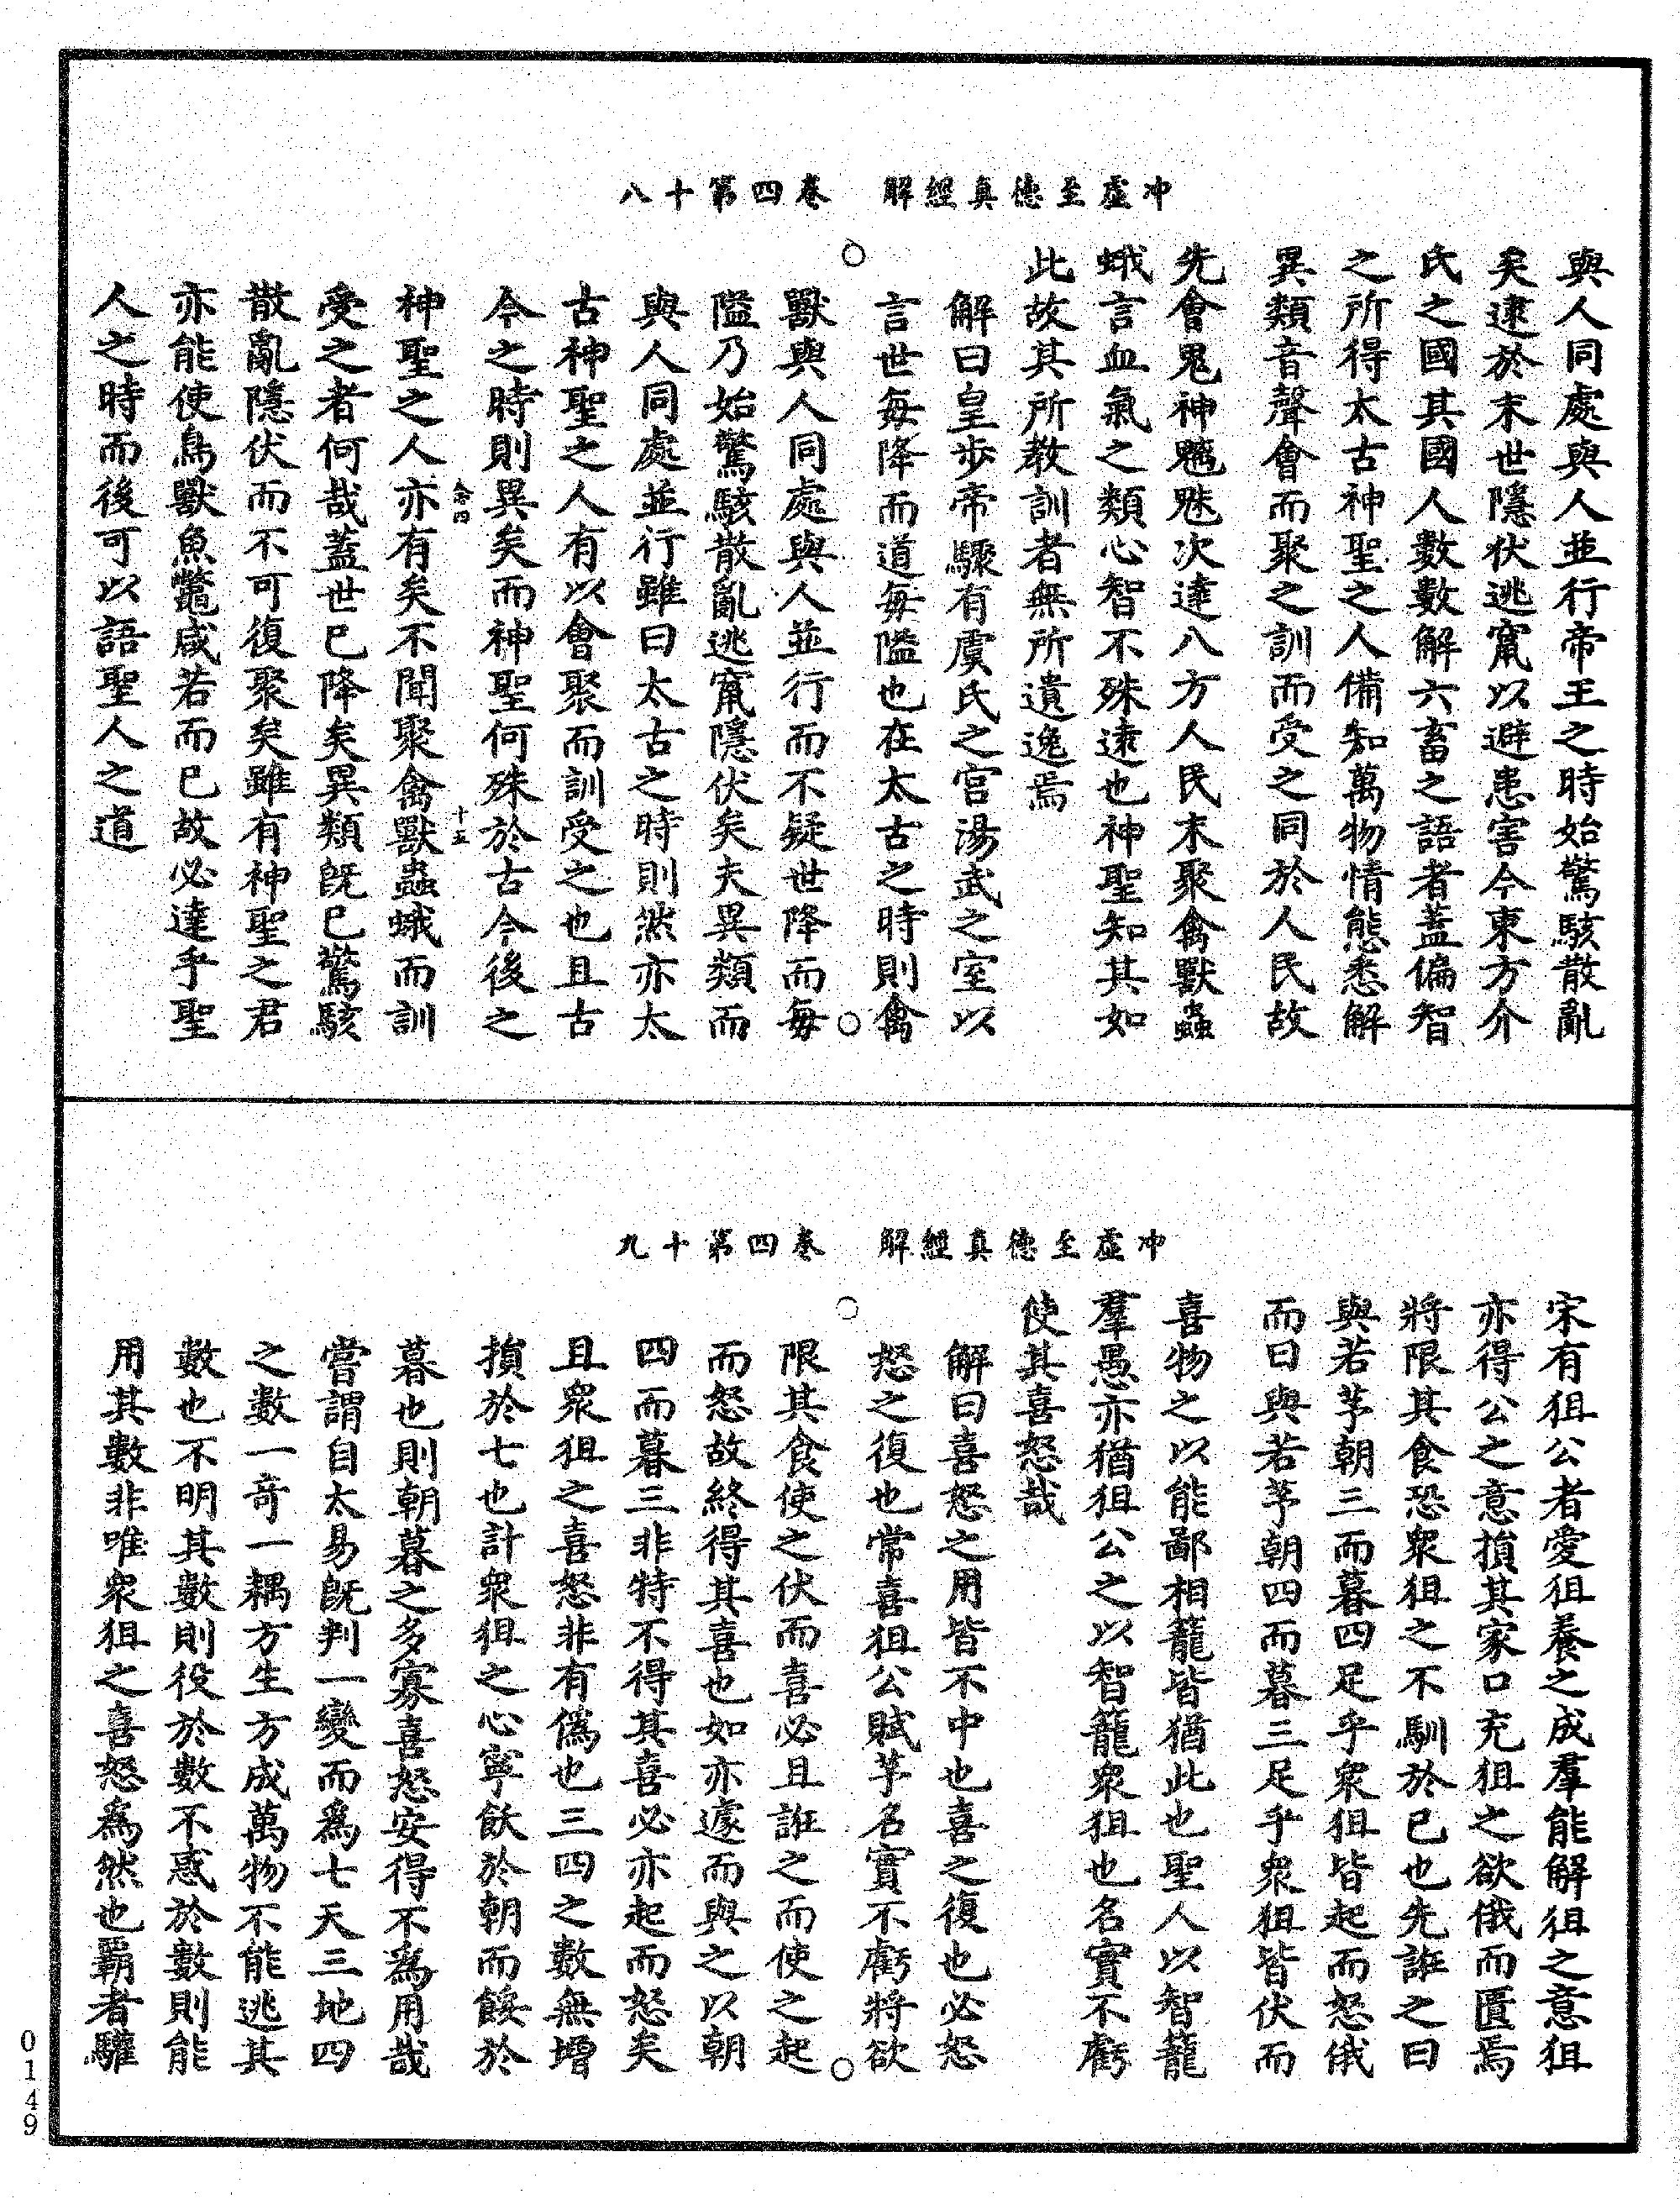 冲虛至德真經解　卷四第十八
與人同處與人並行帝王之時始驚駭散亂
矣逮於末世隱伏逃竄以避患害今東方介
氏之國其國人數數解六畜之語者蓋偏智
之所得太古神聖之人備知萬物情態悉解
異類音聲會而聚之訓而受之同於人民故
先會鬼神魑魅次達八方人民末聚禽獸蟲
蛾言血氣之類心智不殊遠也神聖知其如
此故其所教訓者無所遺逸焉
解曰皇步帝驟有虞氏之宮湯武之室以
言世每降而道每隘也在太古之時則禽
獸與人同處與人並行而不疑世降而每
隘乃始驚駭散亂逃竄隱伏矣夫異類而
與人同處並行雖曰太古之時則然亦太
古神聖之人有以會聚而訓受之也且古
今之時則異矣而神聖何殊於古今後之
神聖之人亦有矣不聞聚禽獸蟲蛾而訓
受之者何哉蓋世已降矣異類既已驚駭
散亂隱伏而不可復聚矣雖有神聖之君
亦能使鳥獸魚鼈咸若而已故必達乎聖
人之時而後可以語聖人之道
冲虛至德真經解　卷四第十九
宋有狙公者愛狙養之成羣能解狙之意狙
亦得公之意損其家口充狙之欲俄而匱焉
將限其食恐衆狙之不馴於已也先誑之曰
與若芧朝三而暮四足乎衆狙皆起而怒俄
而曰與若芧朝四而暮三足乎衆狙皆伏而
喜物之以能鄙相籠皆猶此也聖人以智籠
羣愚亦猶狙公之以智籠衆狙也名實不虧
使其喜怒哉
解曰喜怒之用皆不中也喜之復也必怒
怒之復也常喜狙公賦芧名實不虧將欲
限其食使之伏而喜必且誑之而使之起
而怒故終得其喜也如亦遽而與之以朝
四而暮三非特不得其喜必亦起而怒矣
且衆狙之喜怒非有僞也三四之數無增
損於七也計衆狙之心寧飫於朝而餒於
暮也則朝暮之多寡喜怒安得不爲用哉
嘗謂自太易既判一變而爲七天三地四
之數一奇一耦方生方成萬物不能逃其
數也不明其數則役於數不惑於數則能
用其數非唯衆狙之喜怒爲然也霸者驩
0149